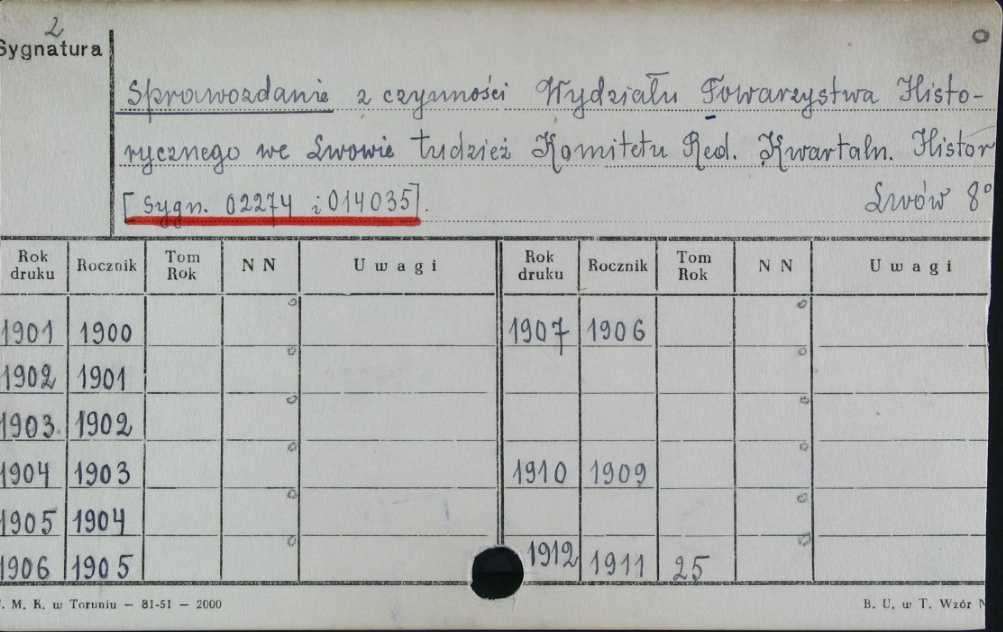 2
Sygnatura
Sprawozdanie z czynności Wydziału Towarzystwa Histo-
rycznego we Lwowie tudzież Komitetu Red. Kwartaln. Histor
[Sygn. 02274 i 014035].
Lwów 8°
Rok druku Rocznik Tom Rok N N Uwagi Rok druku Rocznik Tom Rok N N Uwagi
1901 1900 1907 1906
1902 1901
1903 1902
1904 1903 1910 1909
1905 1904
1906 1905 1912 1911 25
. M. K. w Toruniu — 81-51 — 2000
B. U. w T. Wzór N